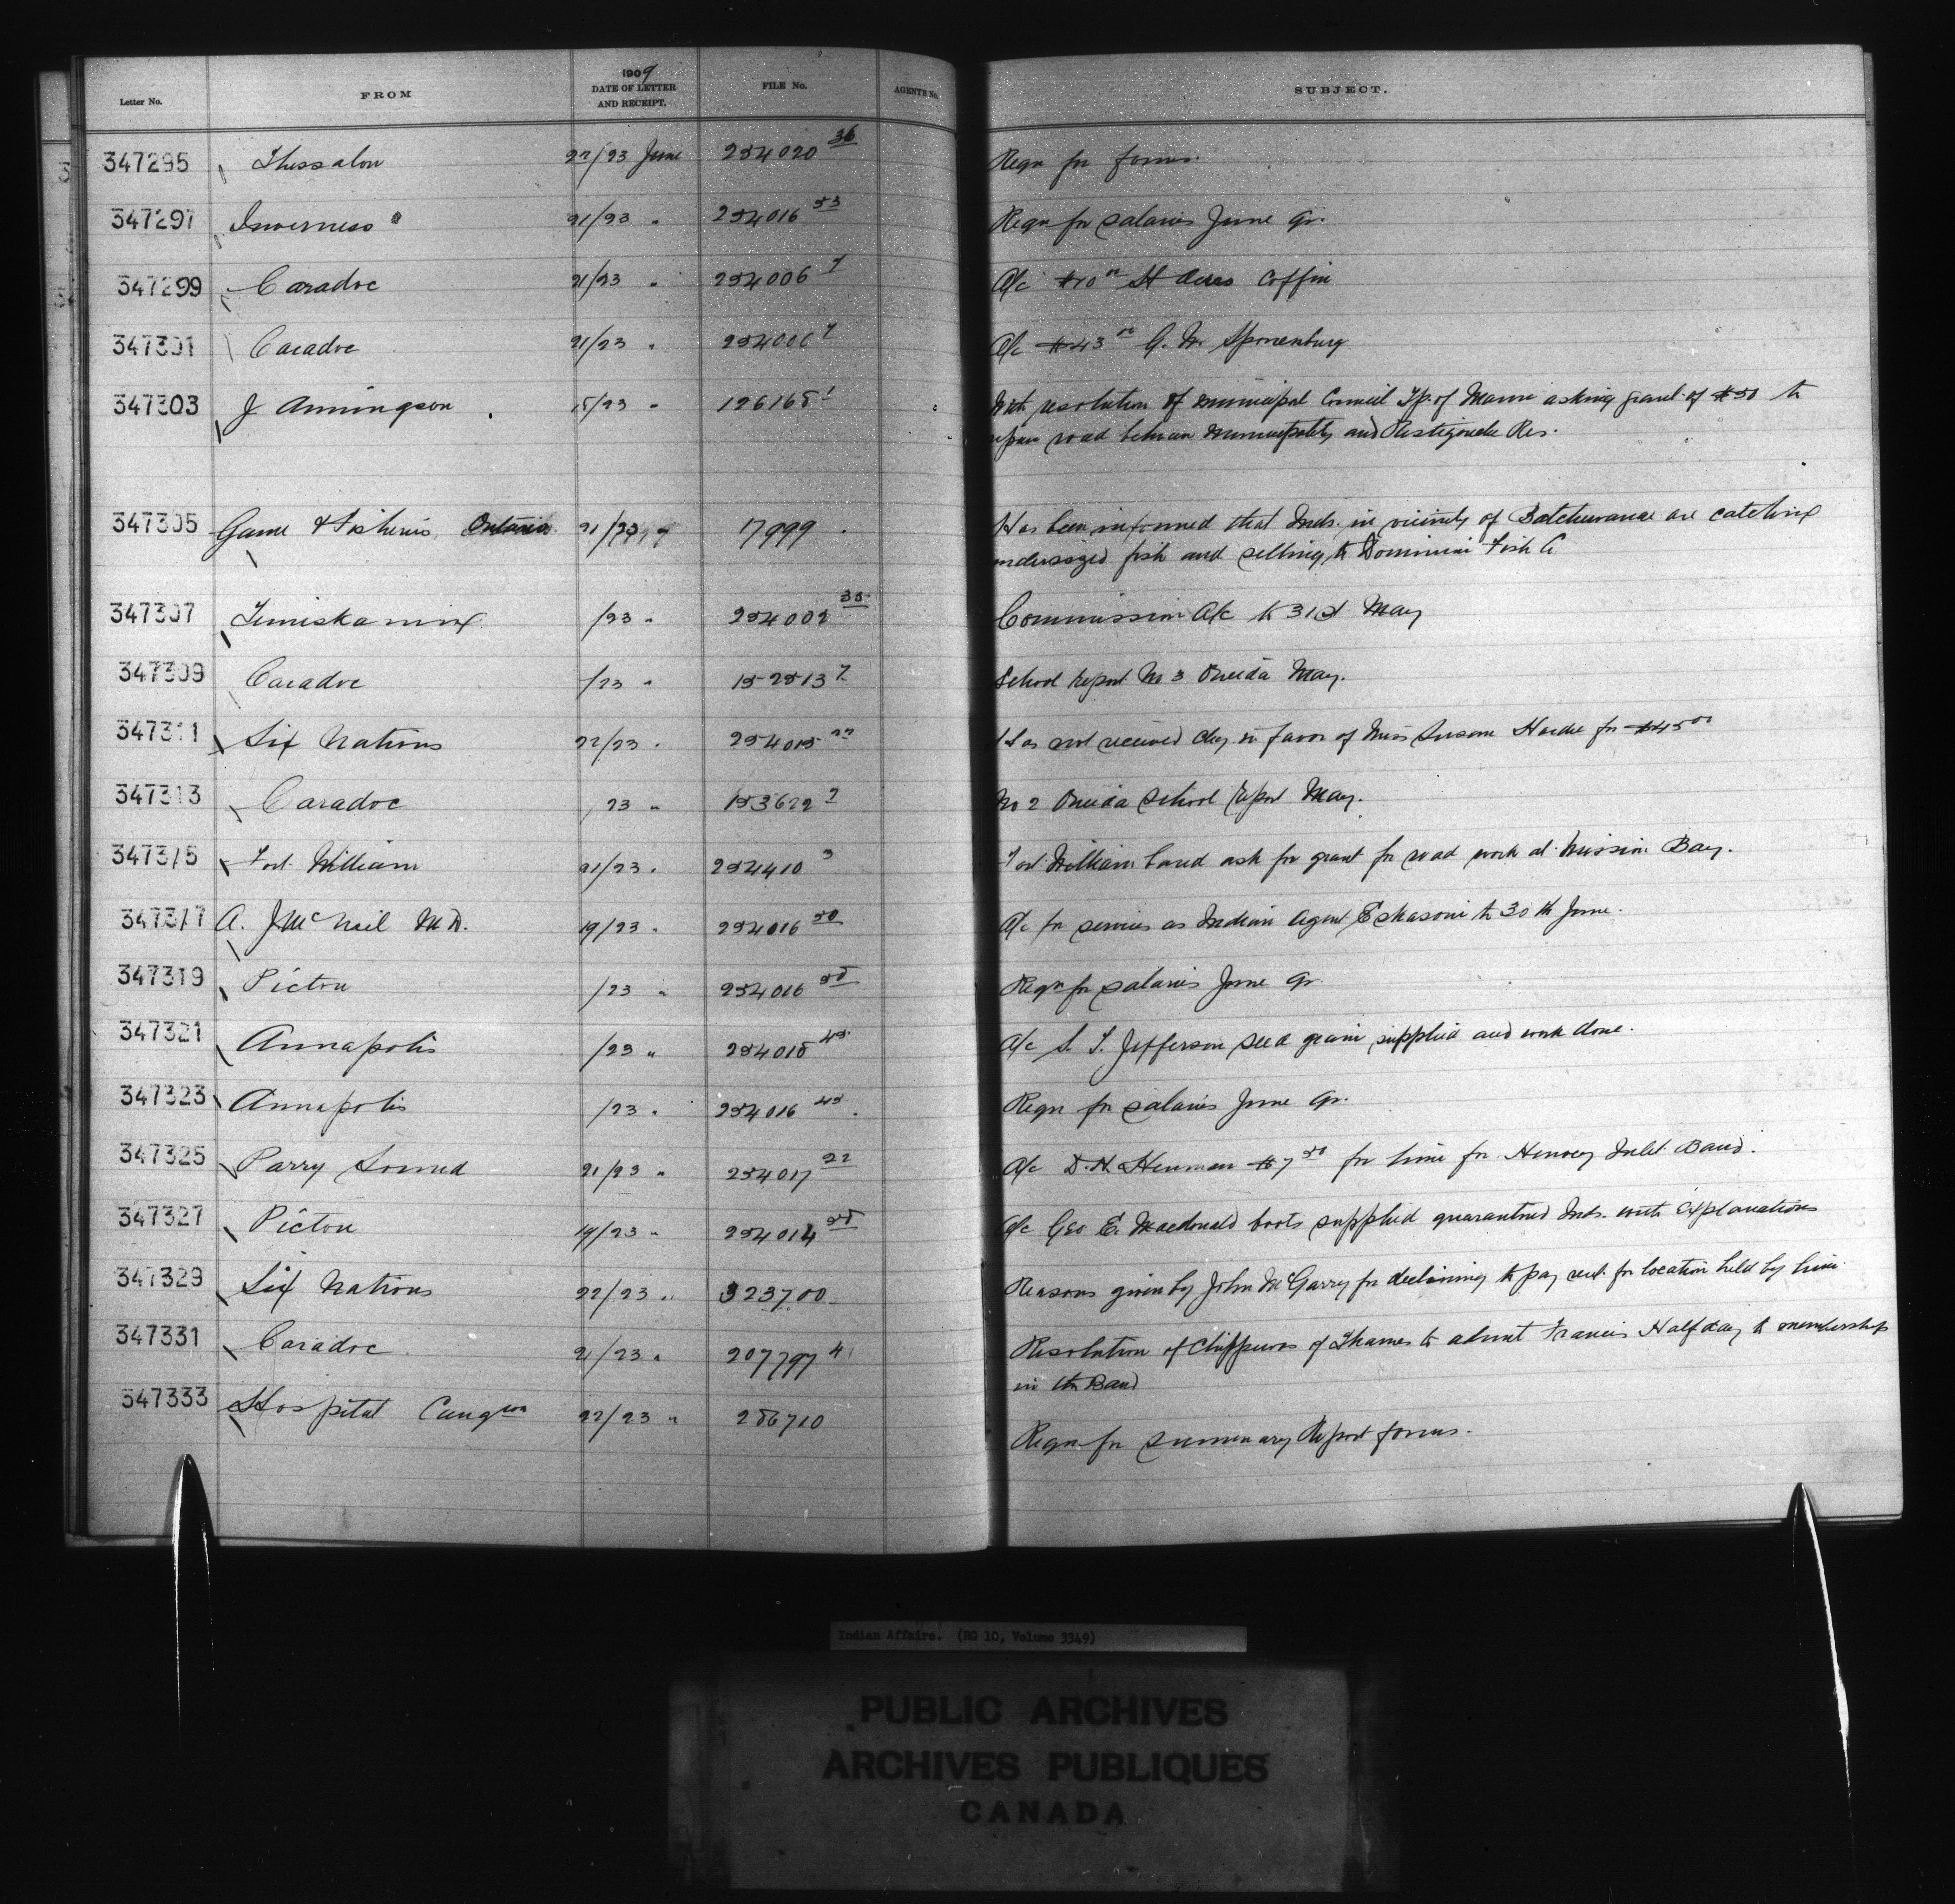 Letter No. FROM 1909 DATE OF LETTER AND RECEIPT. FILE No. AGENTS No. SUBJECT.
347295 Thessalon 22/23 June 254020 36 Reqn for forms.
347297 Inverness 21/23 " 254016 53 Reqn for salaries June qr.
347299 Caradoc 21/23 " 254006 7 A/c $10 00 coffin
347301 Caradoc 21/23 " 254006 7 A/c $43 00 G. W. Sponenburg
347303 J 15/23 " 126165 1 With resolution of municipal Council Tp. of Mann asking grant of $50 to
repair road between municipality and Restigouche Res.
347305 Game & Fisheries, Ontario 21/23 " 17999 Has been informed that Inds. in vicinity of Batchewana are catching
undersized fish and selling to Dominion Fish Co
347307 Temiskaming /23 " 254002 35 Commission A/c to 31st May
347309 Caradoc /23 " 152513 7 School report No 3 Oneida May.
347311 Six Nations 22/23 " 254015 22 Has not received chq in favor of Miss Susan Hardie for $45 00
347313 Caradoc 23 " 153622 2 No 2 Oneida School report May.
347315 Fort William 21/23 " 254410 3 Fort William band ask for grant for road work at Mission Bay.
347317 A. J McNeil M.D. 19/23 " 254016 50 A/c for services as Indian Agent Eskasoni to 30th June.
347319 Pictou /23 " 254016 58 Reqn for salaries June qr
347321 Annapolis /23 " 254015 45 A/c S. T. Jefferson seed grain supplied and work done.
347323 Annapolis /23 " 254016 45 Reqn for salaries June qr.
347325 Parry Sound 21/23 " 254017 22 A/c D. N. $7 50 for lime for Henvey Inlet Band.
347327 Pictou 19/23 " 254014 58 A/c Geo E. Macdonald boots supplied quarantined Inds. with explanations
347329 Six Nations 22/23 " 323700 Reasons given by John McGarry for declining to pay rent for location held by him.
347331 Caradoc 21/23 " 207797 4 Resolution of Chippewas of Thames to admit Francis Halfday to membership
in the Band
347333 Hospital 22/23 " 286710 Reqn for summary Report forms.
Indian Affairs. (RG 10, Volume 3349)
PUBLIC ARCHIVES
ARCHIVES PUBLIQUES
CANADA